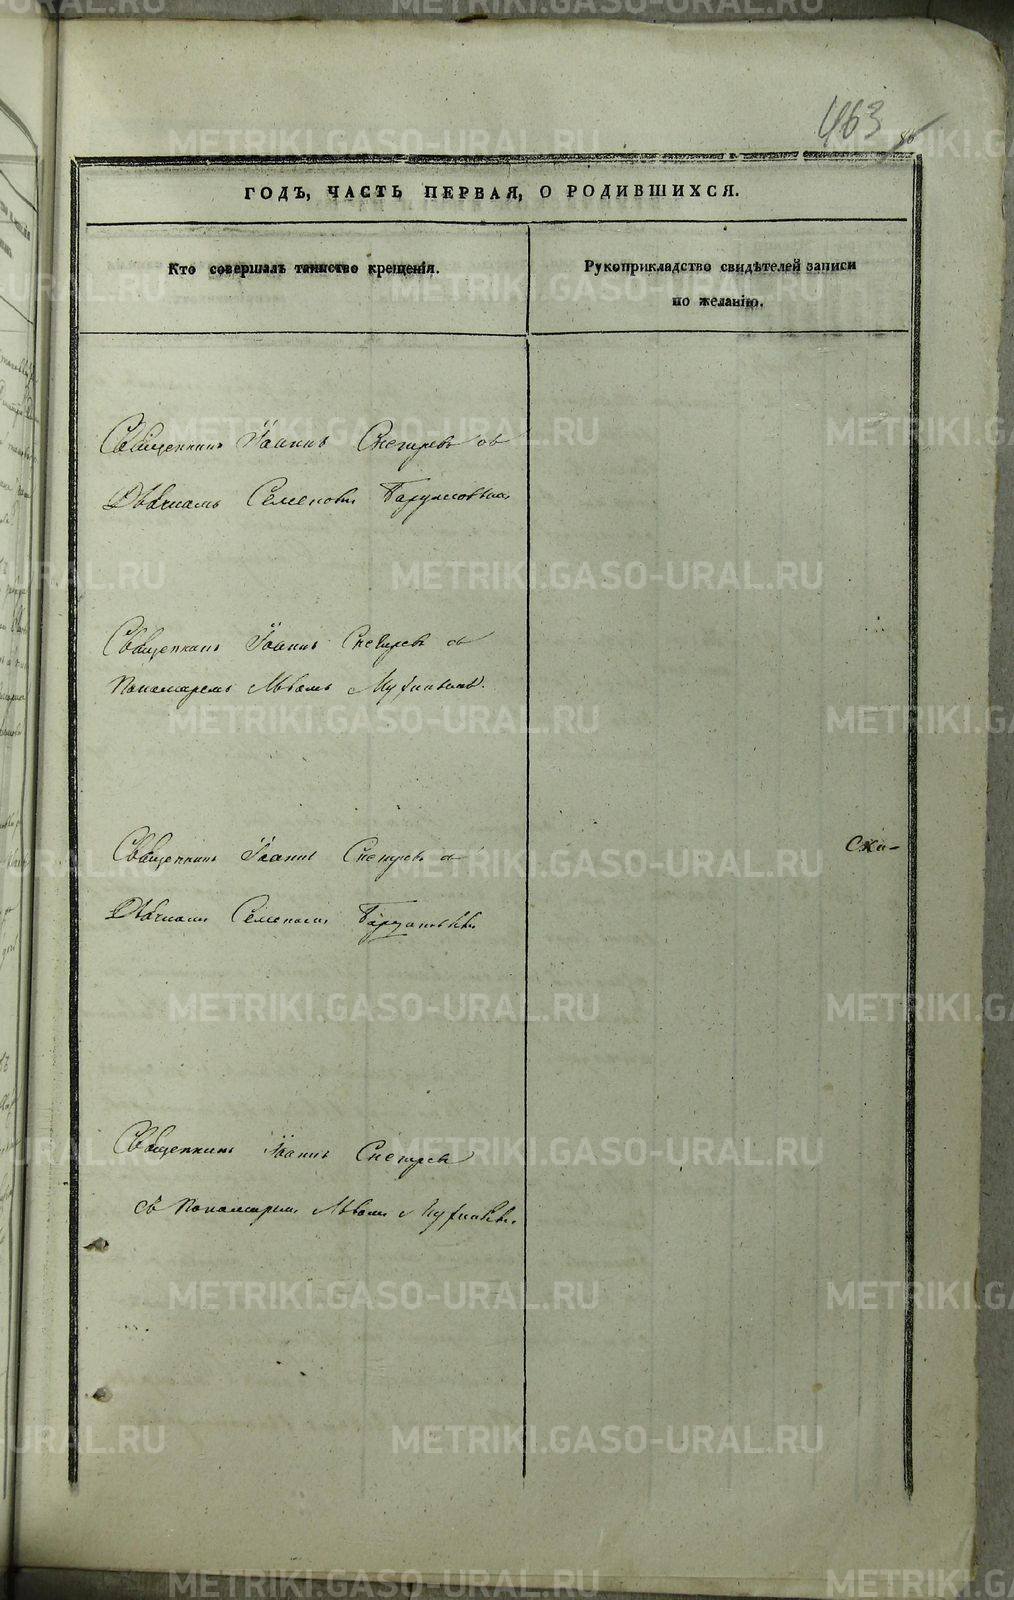 463
86
ГОДЪ, ЧАСТЬ ПЕРВАЯ, О РОДИВШИХСЯ.
Кто совершалъ таинство крещенія.
Рукоприкладство свидѣтелей записи
по желанію.
Священникъ Іоаннъ Снегиревъ съ
Дьячкомъ Семеномъ
Священникъ Іоаннъ Снегиревъ съ
Пономаремъ Львомъ
Священникъ Іоаннъ Снегиревъ съ
Ска-
Дьячкомъ Семеномъ
Священникъ Іоаннъ Снегиревъ
съ Пономаремъ Львомъ
METRIKI.GASO-URAL.RU